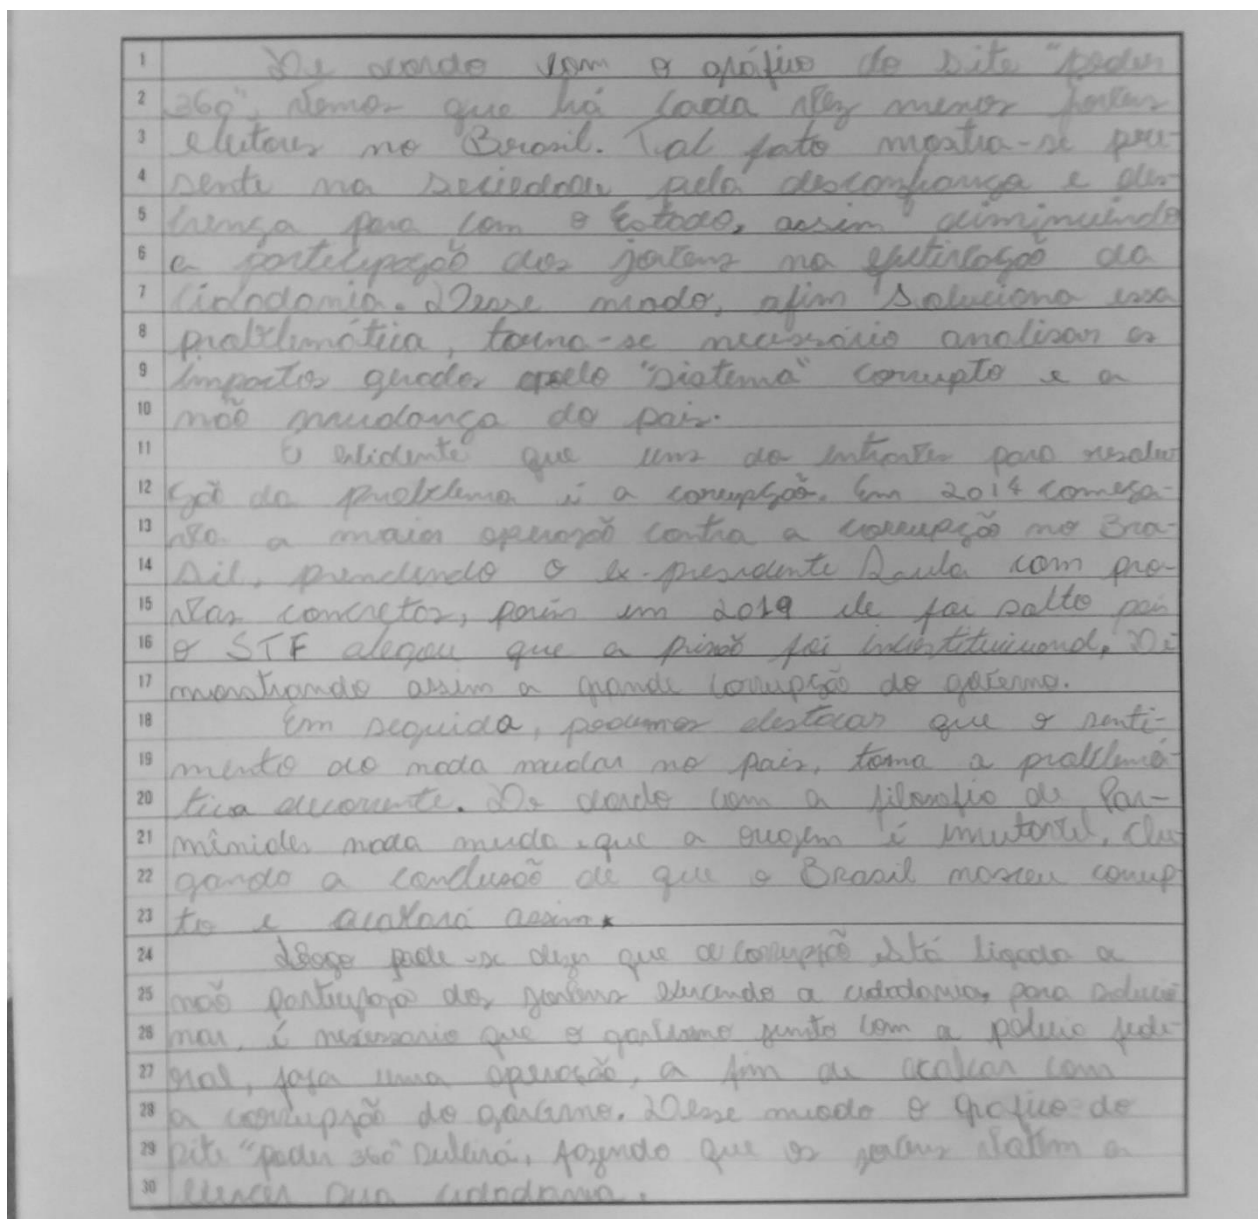 1 De acordo com o gráfico do site "poder
2 360", vemos que há cada vez menos jovens
3 eleitores no Brasil. Tal fato mostra-se pre-
4 sente na sociedade pela desconfiança e des-
5 crença para com o Estado, assim diminuindo
6 a participação dos jovens na efetivação da
7 cidadania. Desse modo, afim soluciona essa
8 problemática, torna-se necessário analisar os
9 impactos gerados pelo "sistema" corrupto e a
10 não mudança do pais.
11 É evidente que uns do entraves para resolu
12 ção do problema é a corrupção. Em 2014 começa-
13 a maior operação contra a corrupção no Bra-
14 sil, prendendo o ex-presidente Lula com pro-
15 vas concretas, porém em 2019 ele foi solto pois
16 o STF alegou que a prisão foi De
17 monstrando assim a grande corrupção do governo.
18 Em seguida, podemos destacar que o senti-
19 mento do nada mudar no pais, torna a problemá-
20 tica decorrente. De acordo com a filosofia de Par-
21 mênides nada muda que a origem é imutavel, che
22 gando a conclusão de que o Brasil nasceu corrup
23 to e acabará assim.
24 Logo pode-se dizer que a corrupção está ligada a
25 não participação dos jovens exercendo a cidadania, para solucio
26 nar, é necessario que o governo junto com a policia fede-
27 ral, faça uma operação, a fim de acabar com
28 a corrupção do governo. Desse modo o gráfico do
29 site "poder 360" subirá, fazendo que os jovens voltem a
30 exercer sua cidadania.